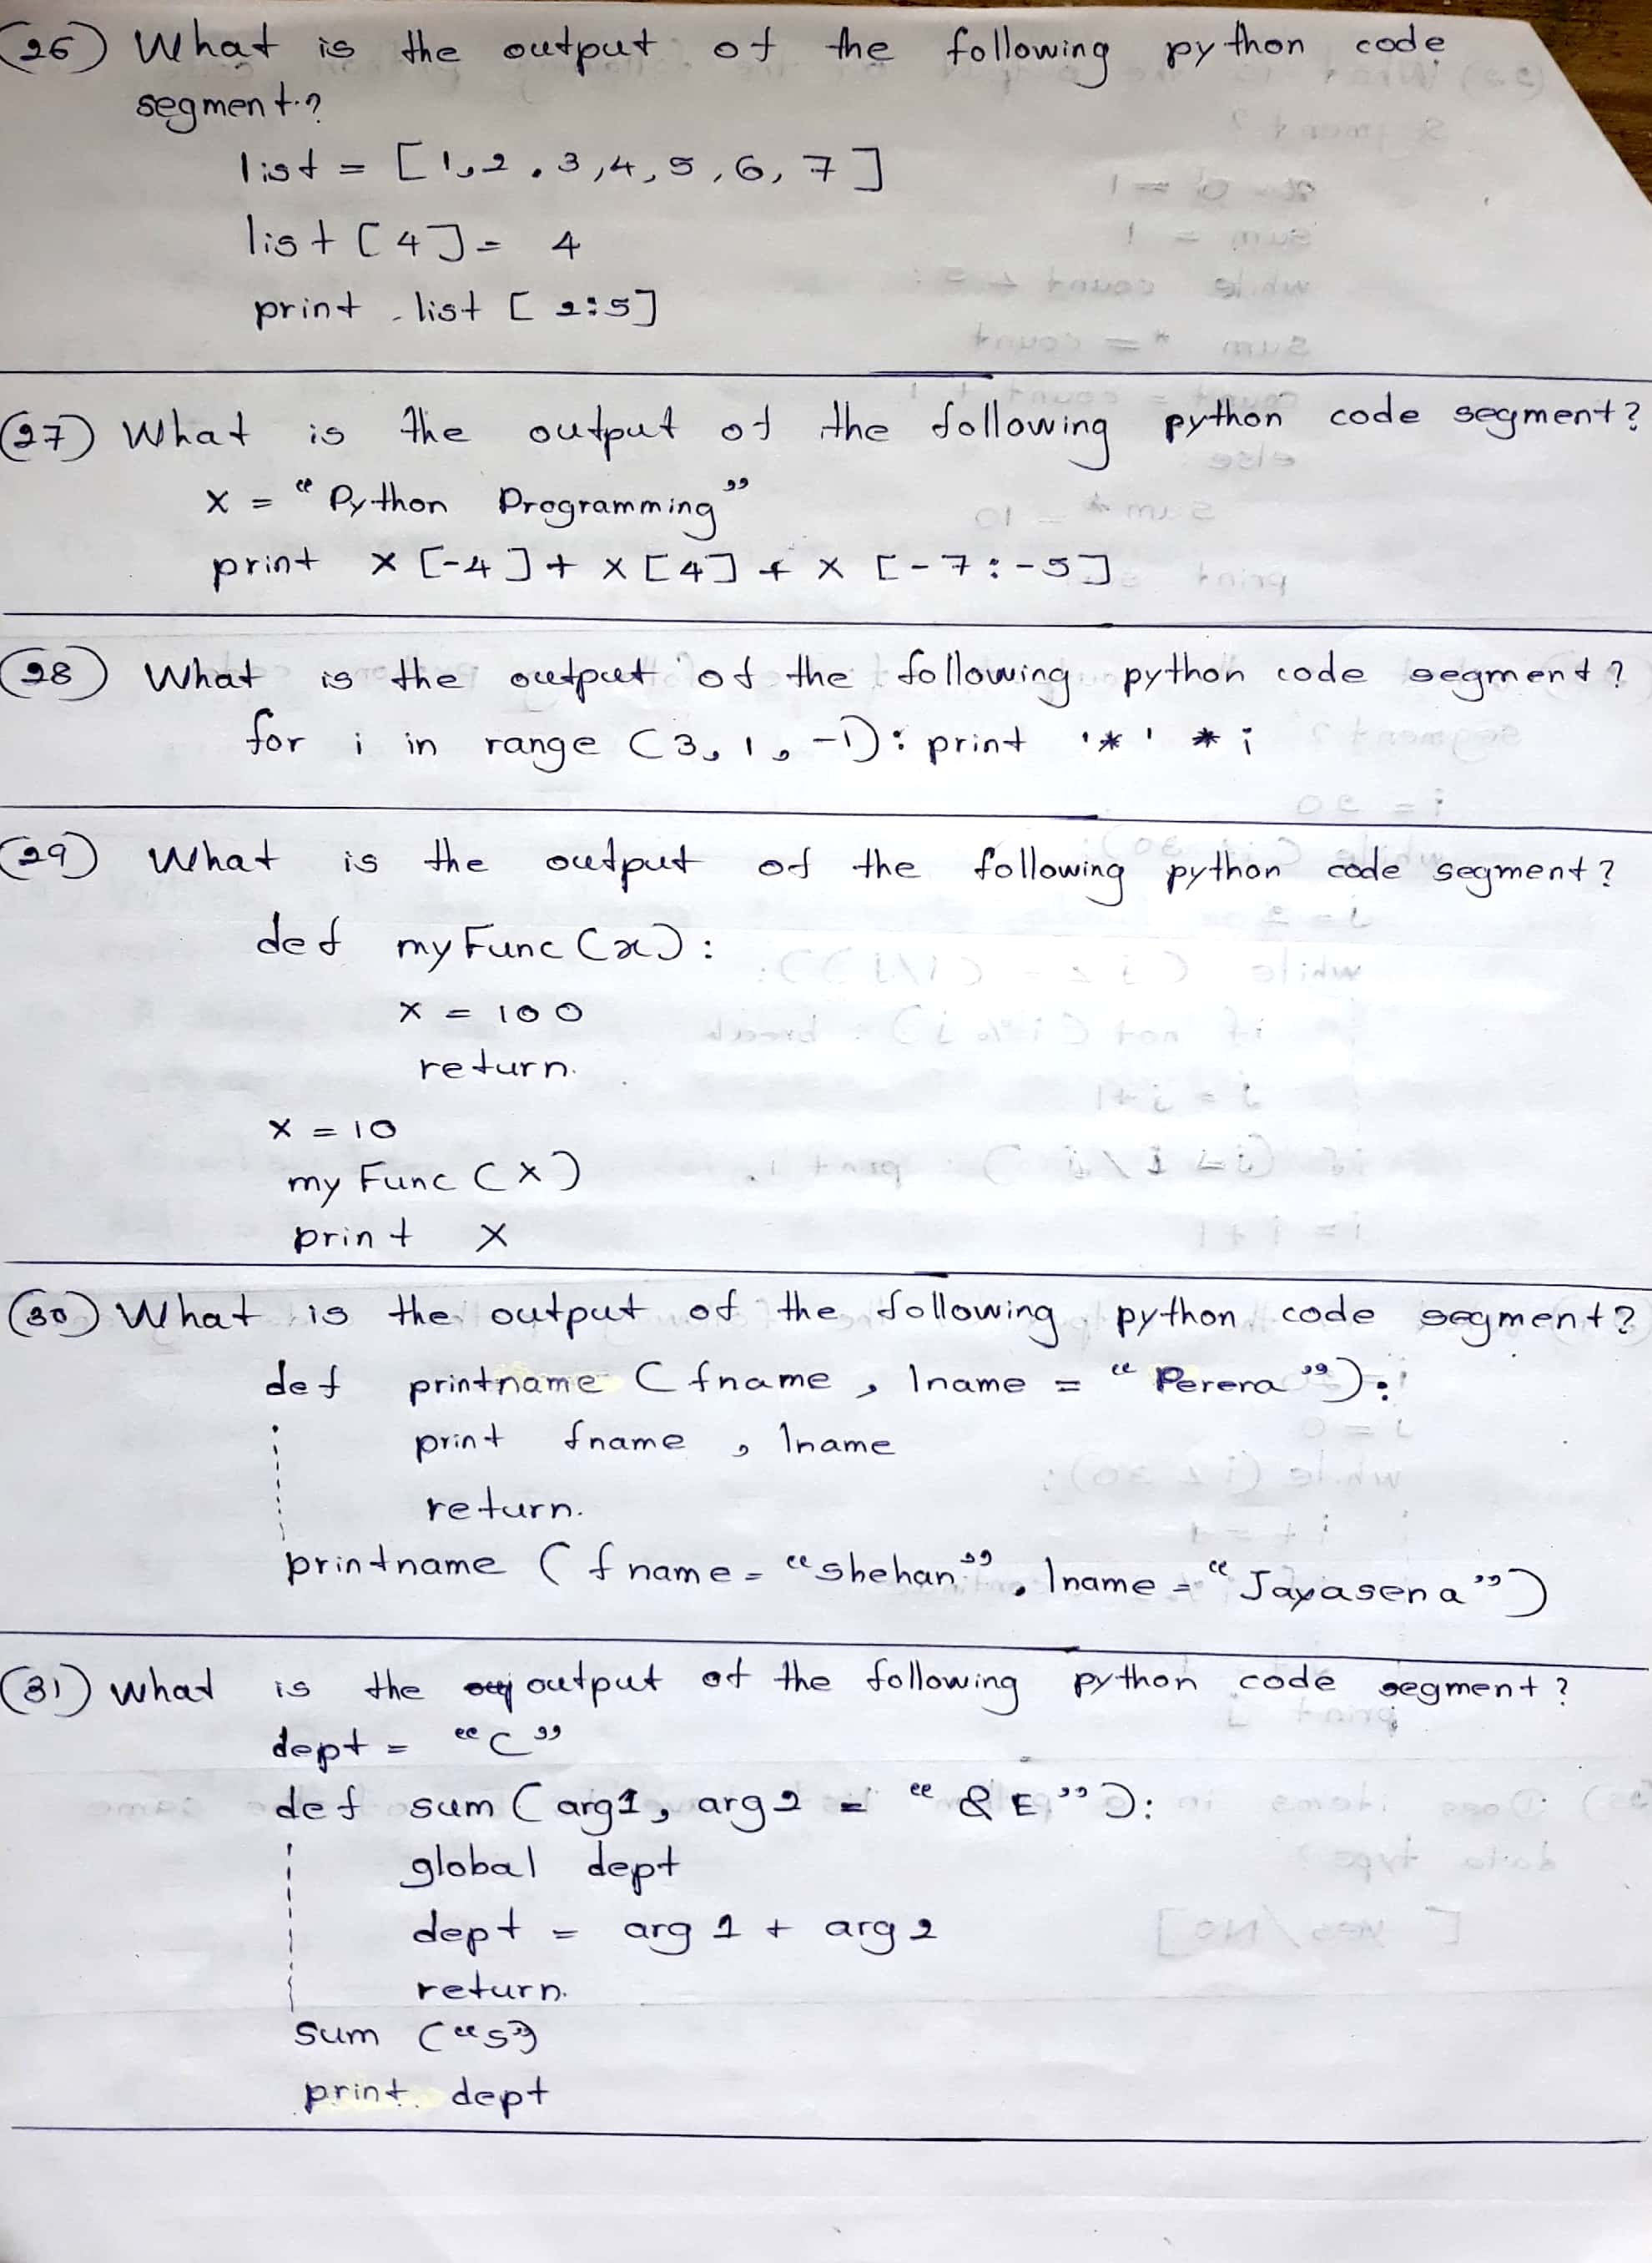 (26) What is the output of the following python code
segment?
list = [1,2,3,4,5,6,7]
list[4] = 4
print list[2:5]
(27) What is the output of the following python code segment?
x = "Python Programming"
print x[-4] + x[4] + x[-7:-5]
(28) What is the output of the following python code segment?
for i in range (3,1,-1): print '*' * i
(29) What is the output of the following python code segment?
def myFunc(x):
x = 100
return
x = 10
myFunc(x)
print x
(30) What is the output of the following python code segment?
def printname (fname, lname = "Perera"):
print fname, lname
return
printname (fname = "Shehan", lname = "Jayasena")
(31) What is the output of the following python code segment?
dept = "C"
def sum (arg1, arg2 = "&E"):
global dept
dept = arg1 + arg2
return
sum ("S")
print dept